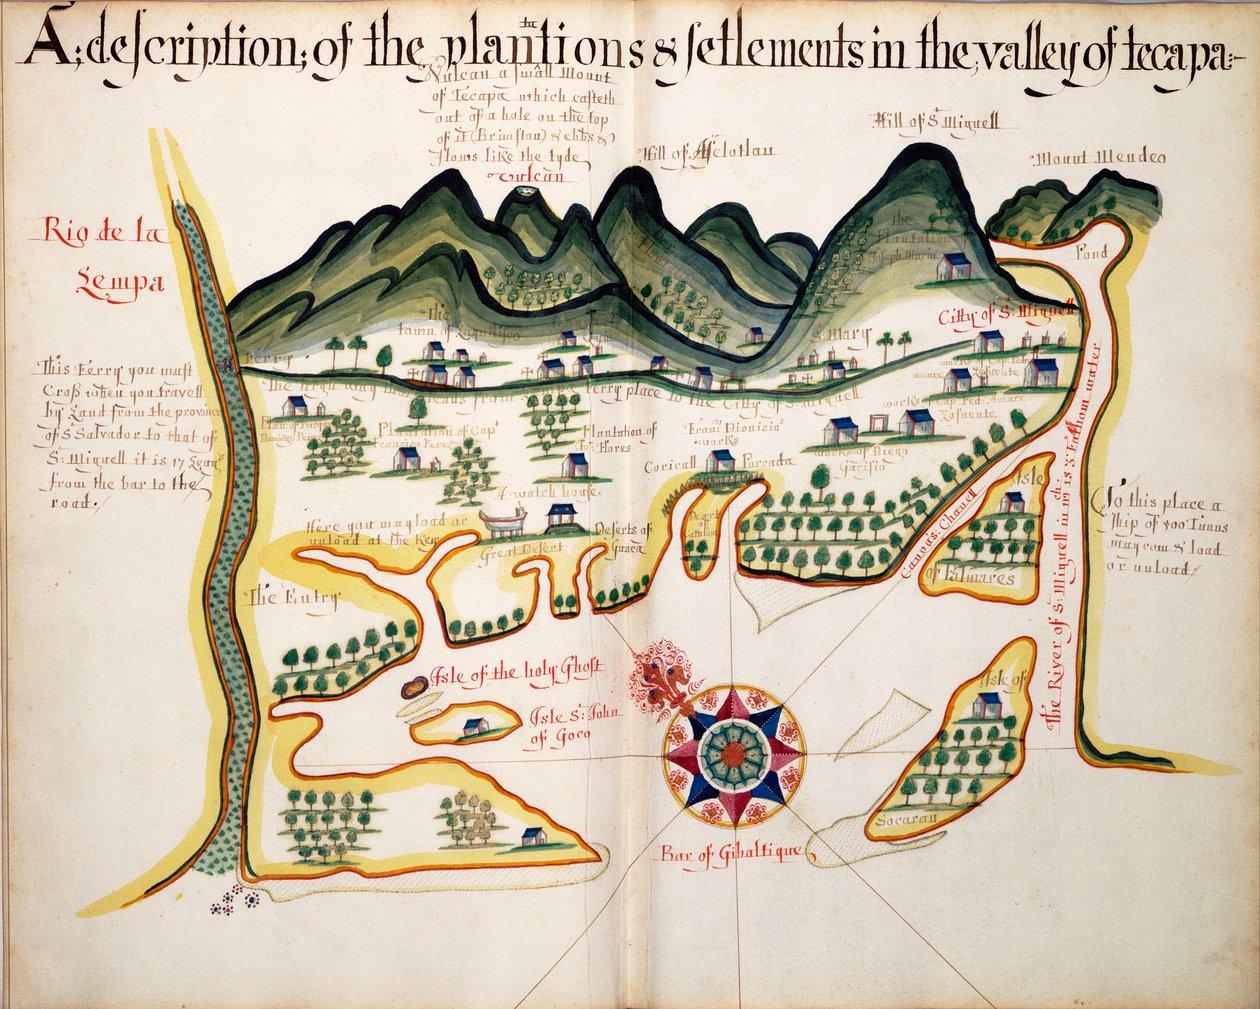 A; description; of the plantions & setlements in the valley of tecapa:-
ta
Vulcan a small Mount
of Tecapa which casteth
out of a hole on the top
of it (Brimston) & ebbs &
flows like the tyde
vulcan
Hill of
Hill of St. Miguell
Mount Mendeo
Rio de la
Lempa
the
Plantation
Joseph Marin
Pond
the
town of
St. Mary
Citty of St. Miguell
This Ferry you must
Cross when you travell
by Land from the province
of S Salvador to that of
St. Miguell it is 17 Leags
from the bar to the
road.
Ferry
the High way
from
ferry place to the Citty of St. Miguell
Plantation of Capt
Francisco Perez
Plantation of
Flores
Franco Dionisio
works
Coricall
Parcada
works of Diego
A watch house
Here you may load or
unload at the Key
Great Desert
Deserts of
Guaca
Desert
of
Canoas Chanell
Isle
of Palmares
The River of St. Miguell in
Fathom water
To this place a
ship of 500 Tunns
may com & load
or unload
The Entry
Isle of the holy Ghost
Isle St. John
of Goco
Isle of
Socaran
Bar of Gibaltique